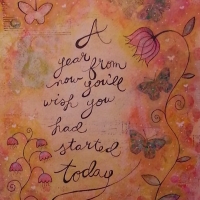 A
year from
now you'll
wish you
had
started
today